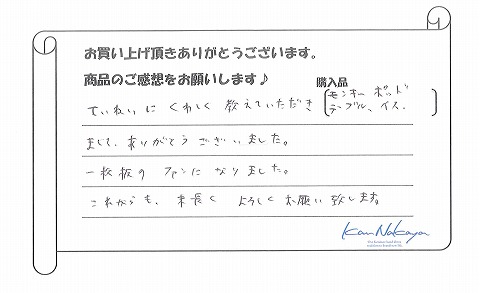 お買い上げ頂きありがとうございます。
商品のご感想をお願いします♪
購入品
モンキーポッド
テーブル、イス.
ていねいに くわしく 教えていただき
まして、ありがとうございました。
一枚板の ファンに なりました。
これからも、末長く よろしく お願い致します。
KanNakaya